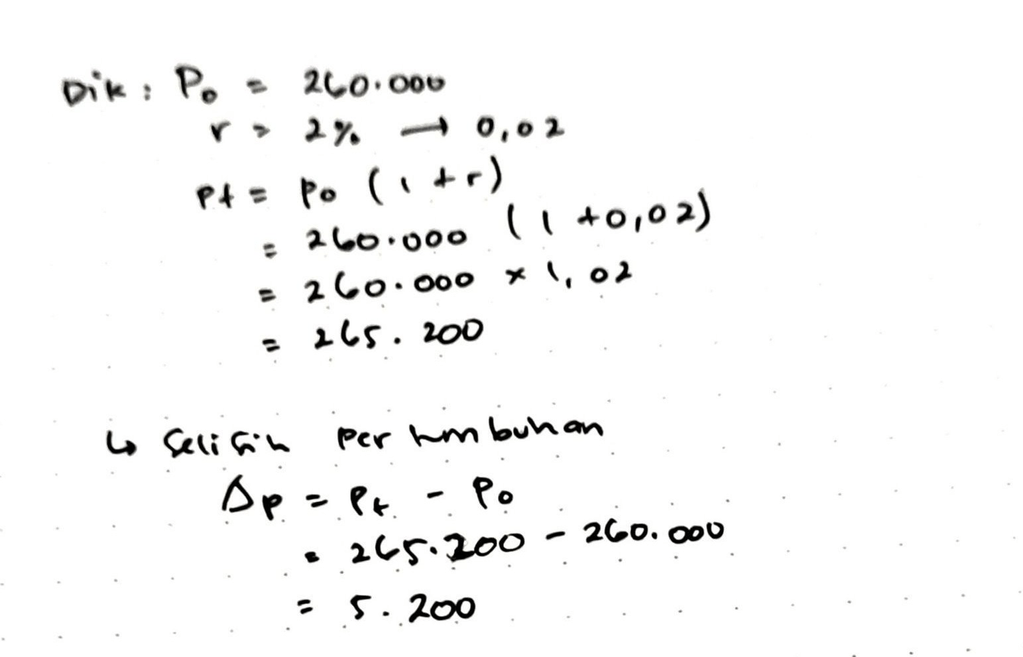 Dik : P₀ = 260.000
r = 2% → 0,02
Pt = Po (1 + r)
= 260.000 (1 + 0,02)
= 260.000 × 1,02
= 265.200
↳ Selisih pertumbuhan
Δp = Pt - Po
= 265.200 - 260.000
= 5.200